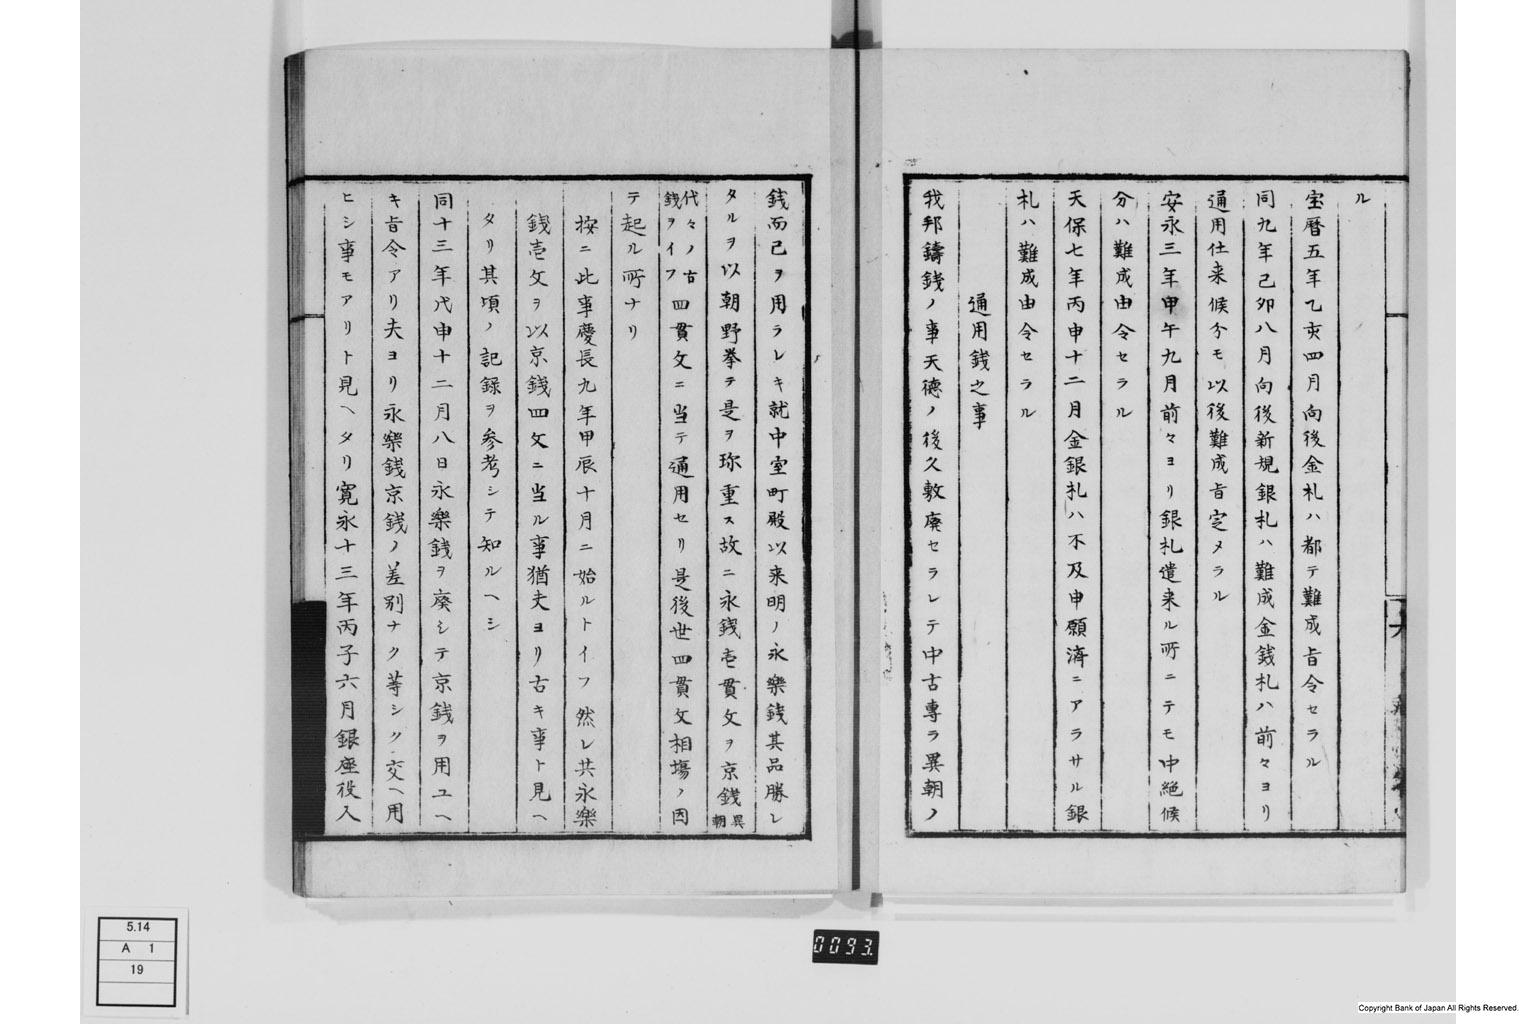 ル
宝暦五年乙亥四月向後金札ハ都テ難成旨令セラル
同九年己卯八月向後新規銀札ハ難成金銭札ハ前々ヨリ
通用仕来候分モ以後難成旨定メラル
安永三年甲午九月前々ヨリ銀札遣来ル所ニテモ中絶候
分ハ難成由令セラル
天保七年丙申十二月金銀札ハ不及申願済ニアラサル銀
札ハ難成由令セラル
通用銭之事
我邦鑄銭ノ事天徳ノ後久敷廃セラレテ中古專ラ異朝ノ
銭而已ヲ用ラレキ就中室町殿以来明ノ永樂銭其品勝レ
タルヲ以朝野挙テ是ヲ珎重ス故ニ永銭壱貫文ヲ京銭異朝
代々ノ古銭ヲイフ四貫文ニ当テ通用セリ是後世四貫文相塲ノ因
テ起ル所ナリ
按ニ此事慶長九年甲辰十月ニ始ルトイフ然レ共永樂
銭壱文ヲ以京銭四文ニ当ル事猶夫ヨリ古キ事ト見ヘ
タリ其頃ノ記録ヲ参考シテ知ルヘシ
同十三年戊申十二月八日永樂銭ヲ廃シテ京銭ヲ用ユヘ
キ旨令アリ夫ヨリ永樂銭京銭ノ差別ナク等シク交ヘ用
ヒシ事モアリト見ヘタリ寛永十三年丙子六月銀座役人
5.14
A 1
19
0093.
Copyright Bank of Japan All Rights Reserved.